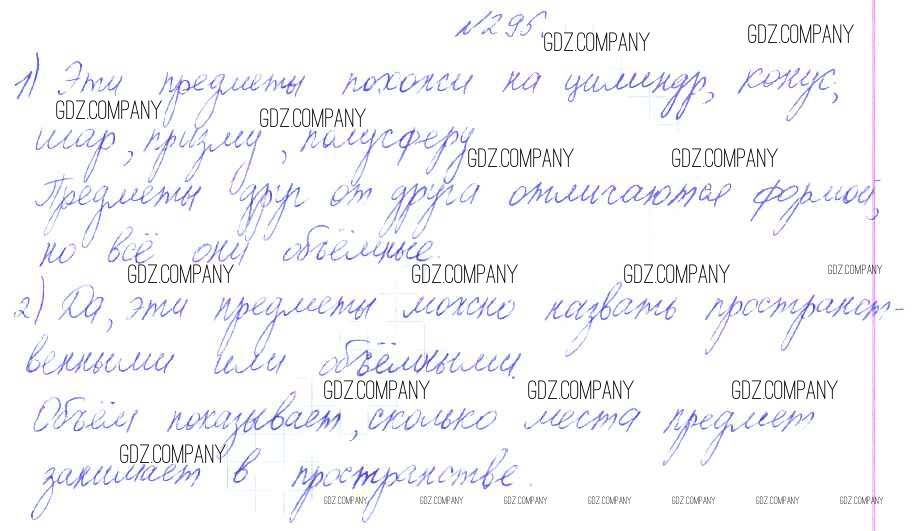 №295.
GDZ.COMPANY GDZ.COMPANY
1) Эти предметы похожи на цилиндр, конус,
GDZ.COMPANY GDZ.COMPANY
шар, призму, полусферу
GDZ.COMPANY GDZ.COMPANY
Предметы друг от друга отличаются формой,
но всё они объёмные.
GDZ.COMPANY GDZ.COMPANY GDZ.COMPANY GDZ.COMPANY
2) Да, эти предметы можно назвать пространст-
венными или объёмными.
GDZ.COMPANY GDZ.COMPANY GDZ.COMPANY
Объём показывает, сколько места предмет
GDZ.COMPANY
занимает в пространстве.
GDZ.COMPANY GDZ.COMPANY GDZ.COMPANY GDZ.COMPANY GDZ.COMPANY GDZ.COMPANY GDZ.COMPANY